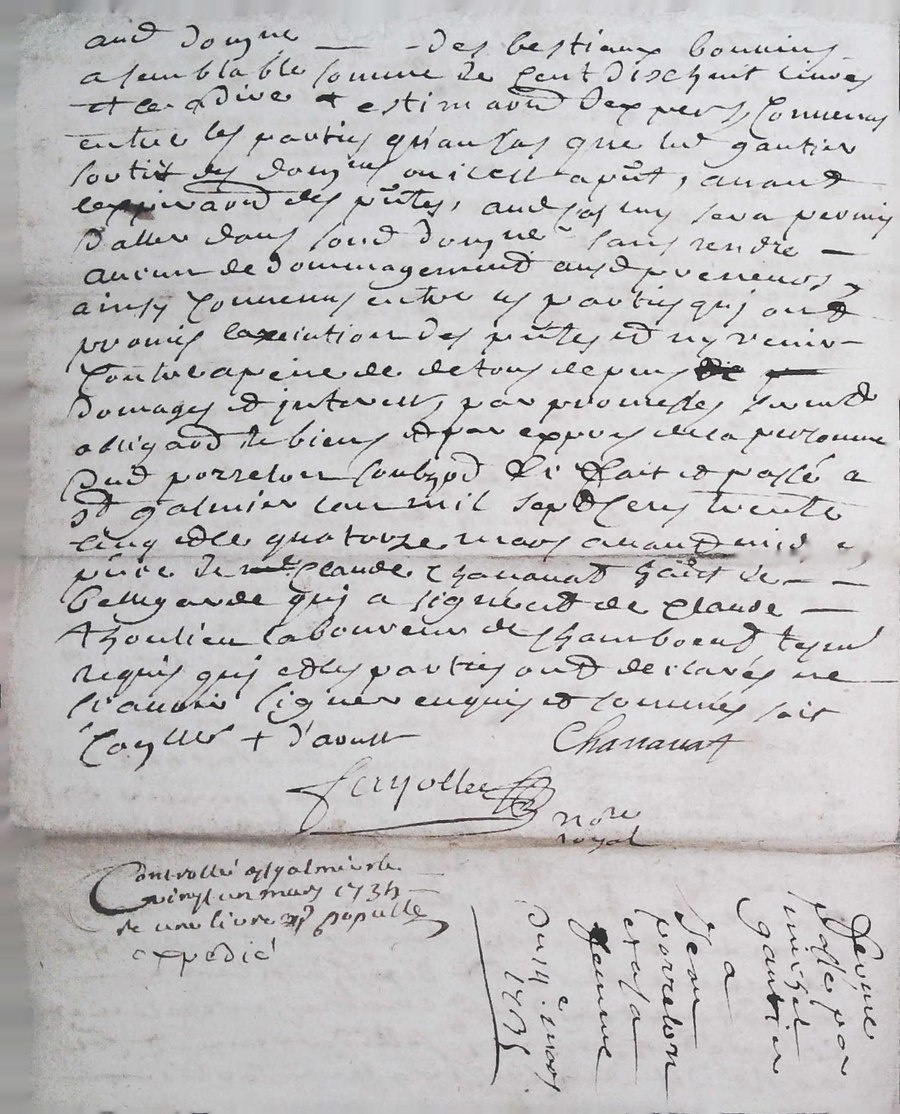 aud domyne — - des bestiaux bouvins
a semblable somme de cent dischuit livres
et ce a dire + estimaon dexpers, convenus
entre les parties qu'au cas que led gautier
sortit des domynes ou il est a pnt, avant
lexpiraon des pntes, aud cas luy sera permis
daller dans sond domyne sans rendre —
aucun dedommagement ausd preneurs,
ainsy convenus entre les parties quj ont
promis lexecution des pntes et ny venir
contre a peine de de tous depens
domages et jnterest, par promesses serment
obligaon de biens et par expres de la personne
dud porreton soubzon &c fait et passé a
st galmier lan mil sept cens trente
cinq et le quatorze mars avant midy
pnce de claude Chavanat de — —
bellegarde quj a signé et de claude —
thoulieu laboureur de chamboeuf tesm
requis quj et les parties ont declarés ne
scavoir signer enquis et sommés soit
+ d'aoust
Chavanat
fayolle
nore
royal
Controllé a st galmier le
vingt un mars 1735
re une livre
expedié
ferme
passée par
michel
gautier
a
Jean
porreton
et sa
femme
Du 14e mars
1735